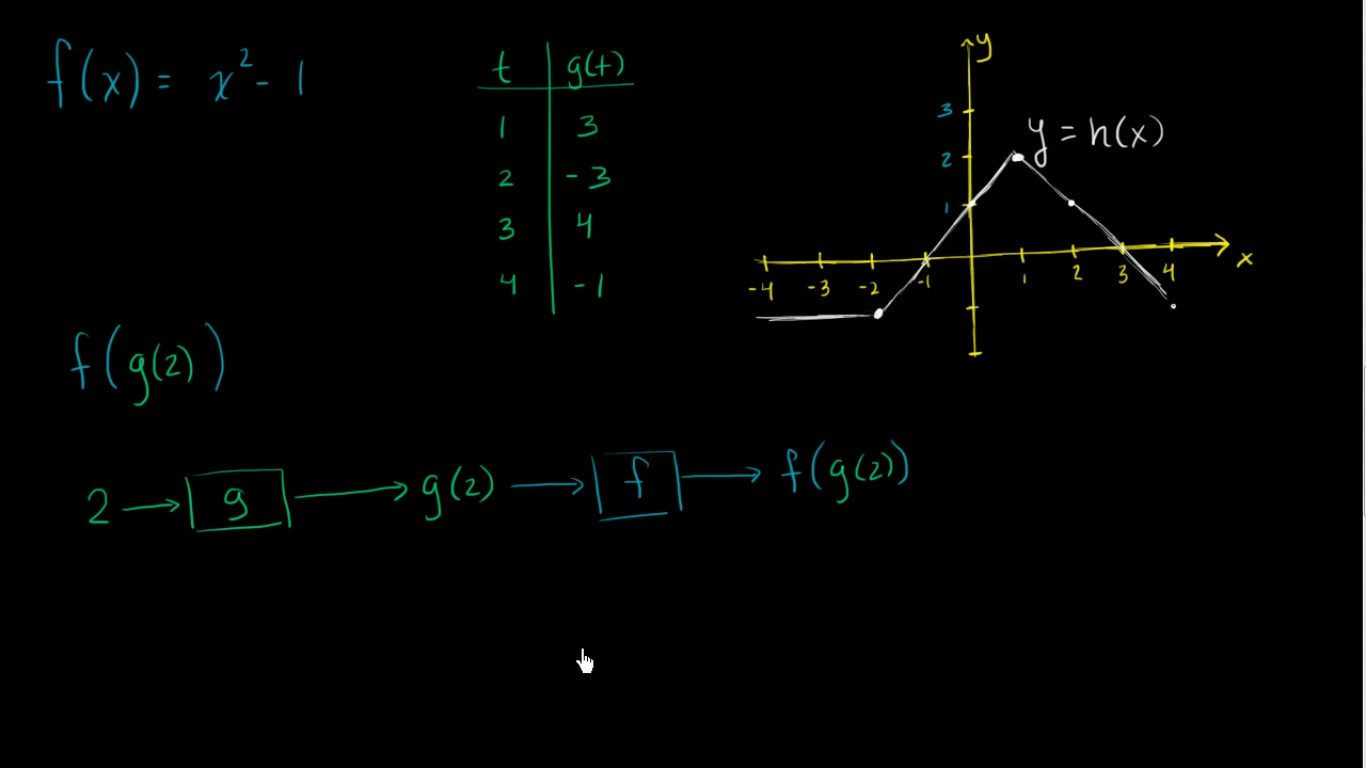 f(x) = x² - 1
t g(t)
1 3
2 -3
3 4
4 -1
y
3
2
1
y = h(x)
-4 -3 -2 -1 1 2 3 4 x
f(g(2))
2 → g → g(2) → f → f(g(2))